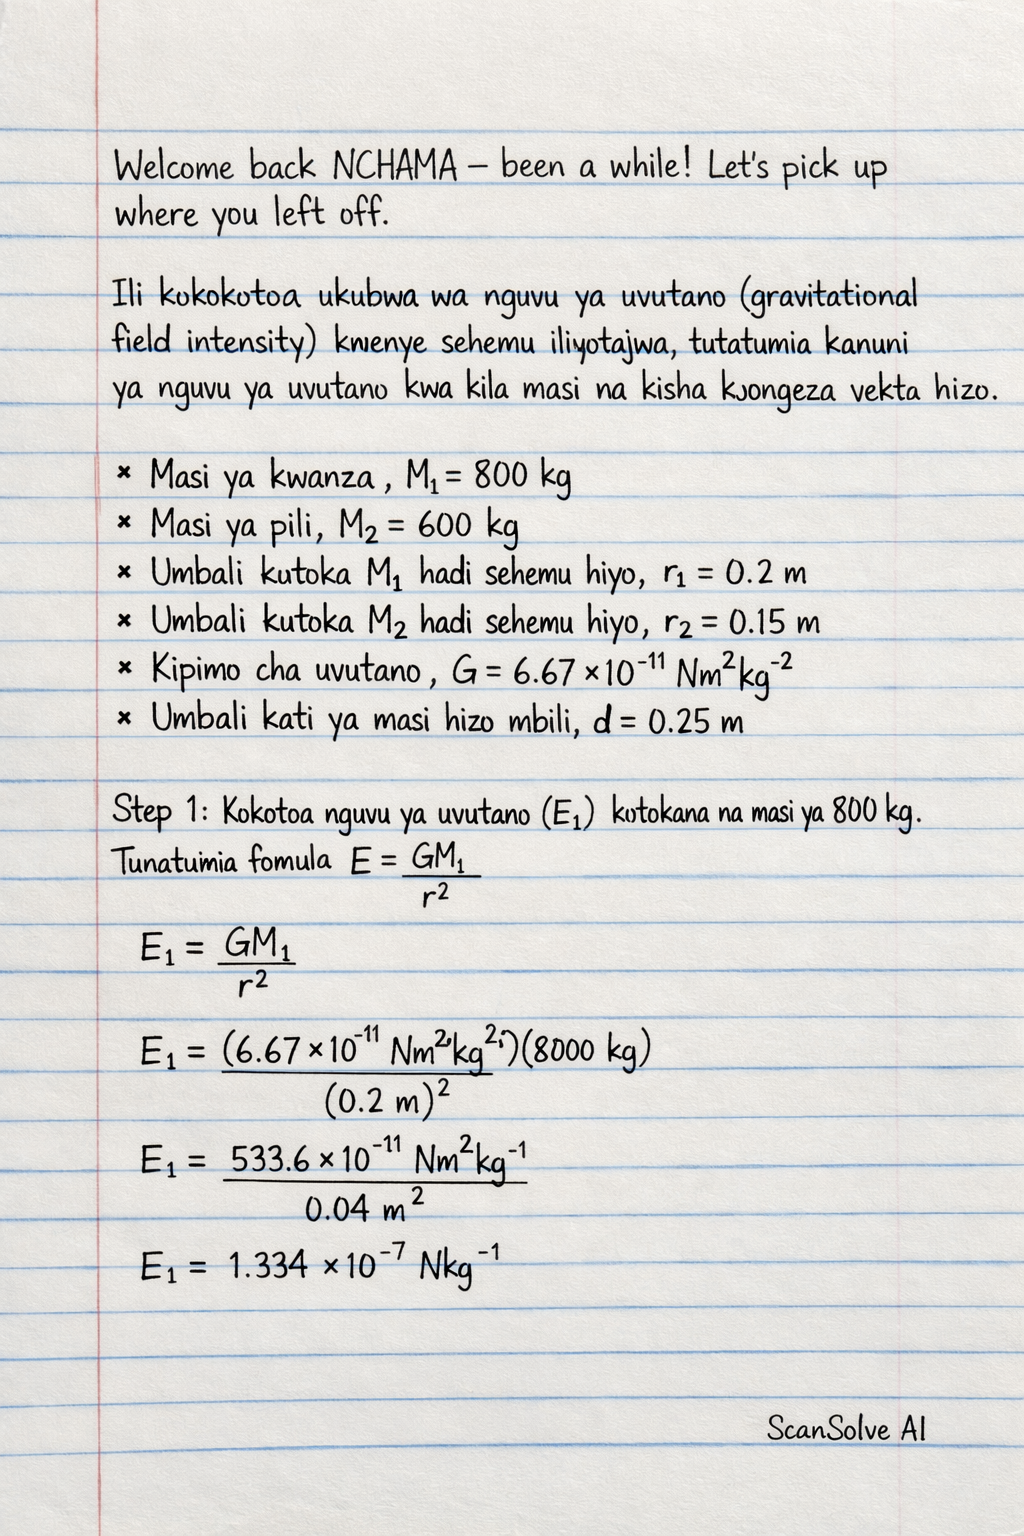 Welcome back NCHAMA – been a while! Let's pick up
where you left off.
Ili kokokotoa ukubwa wa nguvu ya uvutano (gravitational
field intensity) kwenye sehemu iliyotajwa, tutatumia kanuni
ya nguvu ya uvutano kwa kila masi na kisha kuongeza vekta hizo.
× Masi ya kwanza, M₁ = 800 kg
× Masi ya pili, M₂ = 600 kg
× Umbali kutoka M₁ hadi sehemu hiyo, r₁ = 0.2 m
× Umbali kutoka M₂ hadi sehemu hiyo, r₂ = 0.15 m
× Kipimo cha uvutano, G = 6.67 × 10⁻¹¹ Nm²kg⁻²
× Umbali kati ya masi hizo mbili, d = 0.25 m
Step 1: Kokotoa nguvu ya uvutano (E₁) kutokana na masi ya 800 kg.
Tunatumia fomula E = GM₁
r²
E₁ = GM₁
r²
E₁ = (6.67 × 10⁻¹¹ Nm²kg²)(8000 kg)
(0.2 m)²
E₁ = 533.6 × 10⁻¹¹ Nm²kg⁻¹
0.04 m²
E₁ = 1.334 × 10⁻⁷ Nkg⁻¹
ScanSolve AI